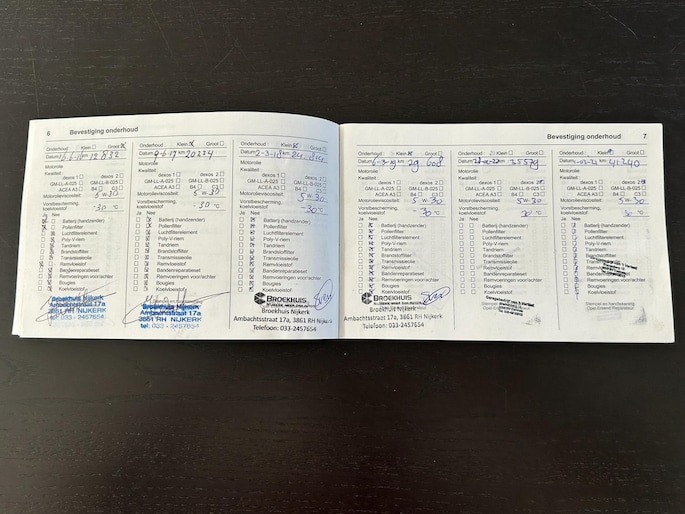 6 Bevestiging onderhoud
Onderhoud : Klein Groot
Datum 16-6-16 km 12 832
Motorolie
Kwaliteit :
dexos 1 dexos 2
GM-LL-A-025 GM-LL-B-025
ACEA A3 B4 C3
Motorolieviscositeit: 5 W-30
Vorstbescherming,
koelvloeistof -30 °C
Ja Nee
Batterij (handzender)
Pollenfilter
Luchtfilterelement
Poly-V-riem
Tandriem
Brandstoffilter
Transmissieolie
Remvloeistof
Bandenreparatieset
Remvoeringen voor/achter
Bougies
Koelvloeistof
Broekhuis Nijkerk
Ambachtsstraat 17a
3861 RH NIJKERK
tel: 033 - 2457654
Onderhoud : Klein Groot
Datum km 20234
Motorolie
Kwaliteit :
dexos 1 dexos 2
GM-LL-A-025 GM-LL-B-025
ACEA A3 B4 C3
Motorolieviscositeit: 5 W-30
Vorstbescherming,
koelvloeistof -30 °C
Ja Nee
Batterij (handzender)
Pollenfilter
Luchtfilterelement
Poly-V-riem
Tandriem
Brandstoffilter
Transmissieolie
Remvloeistof
Bandenreparatieset
Remvoeringen voor/achter
Bougies
Koelvloeistof
Broekhuis Nijkerk
Ambachtsstraat 17a
3861 RH NIJKERK
tel: 033 - 2457654
Onderhoud : Klein Groot
Datum 2-3-18 km
Motorolie
Kwaliteit :
dexos 1 dexos 2
GM-LL-A-025 GM-LL-B-025
ACEA A3 B4 C3
Motorolieviscositeit: 5 W-30
Vorstbescherming,
koelvloeistof -30 °C
Ja Nee
Batterij (handzender)
Pollenfilter
Luchtfilterelement
Poly-V-riem
Tandriem
Brandstoffilter
Transmissieolie
Remvloeistof
Bandenreparatieset
Remvoeringen voor/achter
Bougies
Koelvloeistof
BROEKHUIS
Broekhuis Nijkerk
Ambachtsstraat 17a, 3861 RH Nijkerk
Telefoon: 033-2457654
Bevestiging onderhoud 7
Onderhoud : Klein Groot
Datum 6-3-19 km 29 608
Motorolie
Kwaliteit :
dexos 1 dexos 2
GM-LL-A-025 GM-LL-B-025
ACEA A3 B4 C3
Motorolieviscositeit: 5 W-30
Vorstbescherming,
koelvloeistof -30 °C
Ja Nee
Batterij (handzender)
Pollenfilter
Luchtfilterelement
Poly-V-riem
Tandriem
Brandstoffilter
Transmissieolie
Remvloeistof
Bandenreparatieset
Remvoeringen voor/achter
Bougies
Koelvloeistof
BROEKHUIS
Broekhuis Nijkerk
Ambachtsstraat 17a, 3861 RH Nijkerk
Telefoon: 033-2457654
Onderhoud : Klein Groot
Datum 35579
Motorolie
Kwaliteit :
dexos 1 dexos 2
GM-LL-A-025 GM-LL-B-025
ACEA A3 B4 C3
Motorolieviscositeit: 5W-30
Vorstbescherming,
koelvloeistof 30 °C
Ja Nee
Batterij (handzender)
Pollenfilter
Luchtfilterelement
Poly-V-riem
Tandriem
Brandstoffilter
Transmissieolie
Remvloeistof
Bandenreparatieset
Remvoeringen voor/achter
Bougies
Koelvloeistof
Onderhoud : Klein Groot
Datum 41240
Motorolie
Kwaliteit :
dexos 1 dexos 2
GM-LL-A-025 GM-LL-B-025
ACEA A3 B4 C3
Motorolieviscositeit: 5 W-30
Vorstbescherming,
koelvloeistof °C
Ja Nee
Batterij (handzender)
Pollenfilter
Luchtfilterelement
Poly-V-riem
Tandriem
Remvoeringen voor/achter
Bougies
Koelvloeistof
Stempel en handtekening
Opel Erkend Reparateur